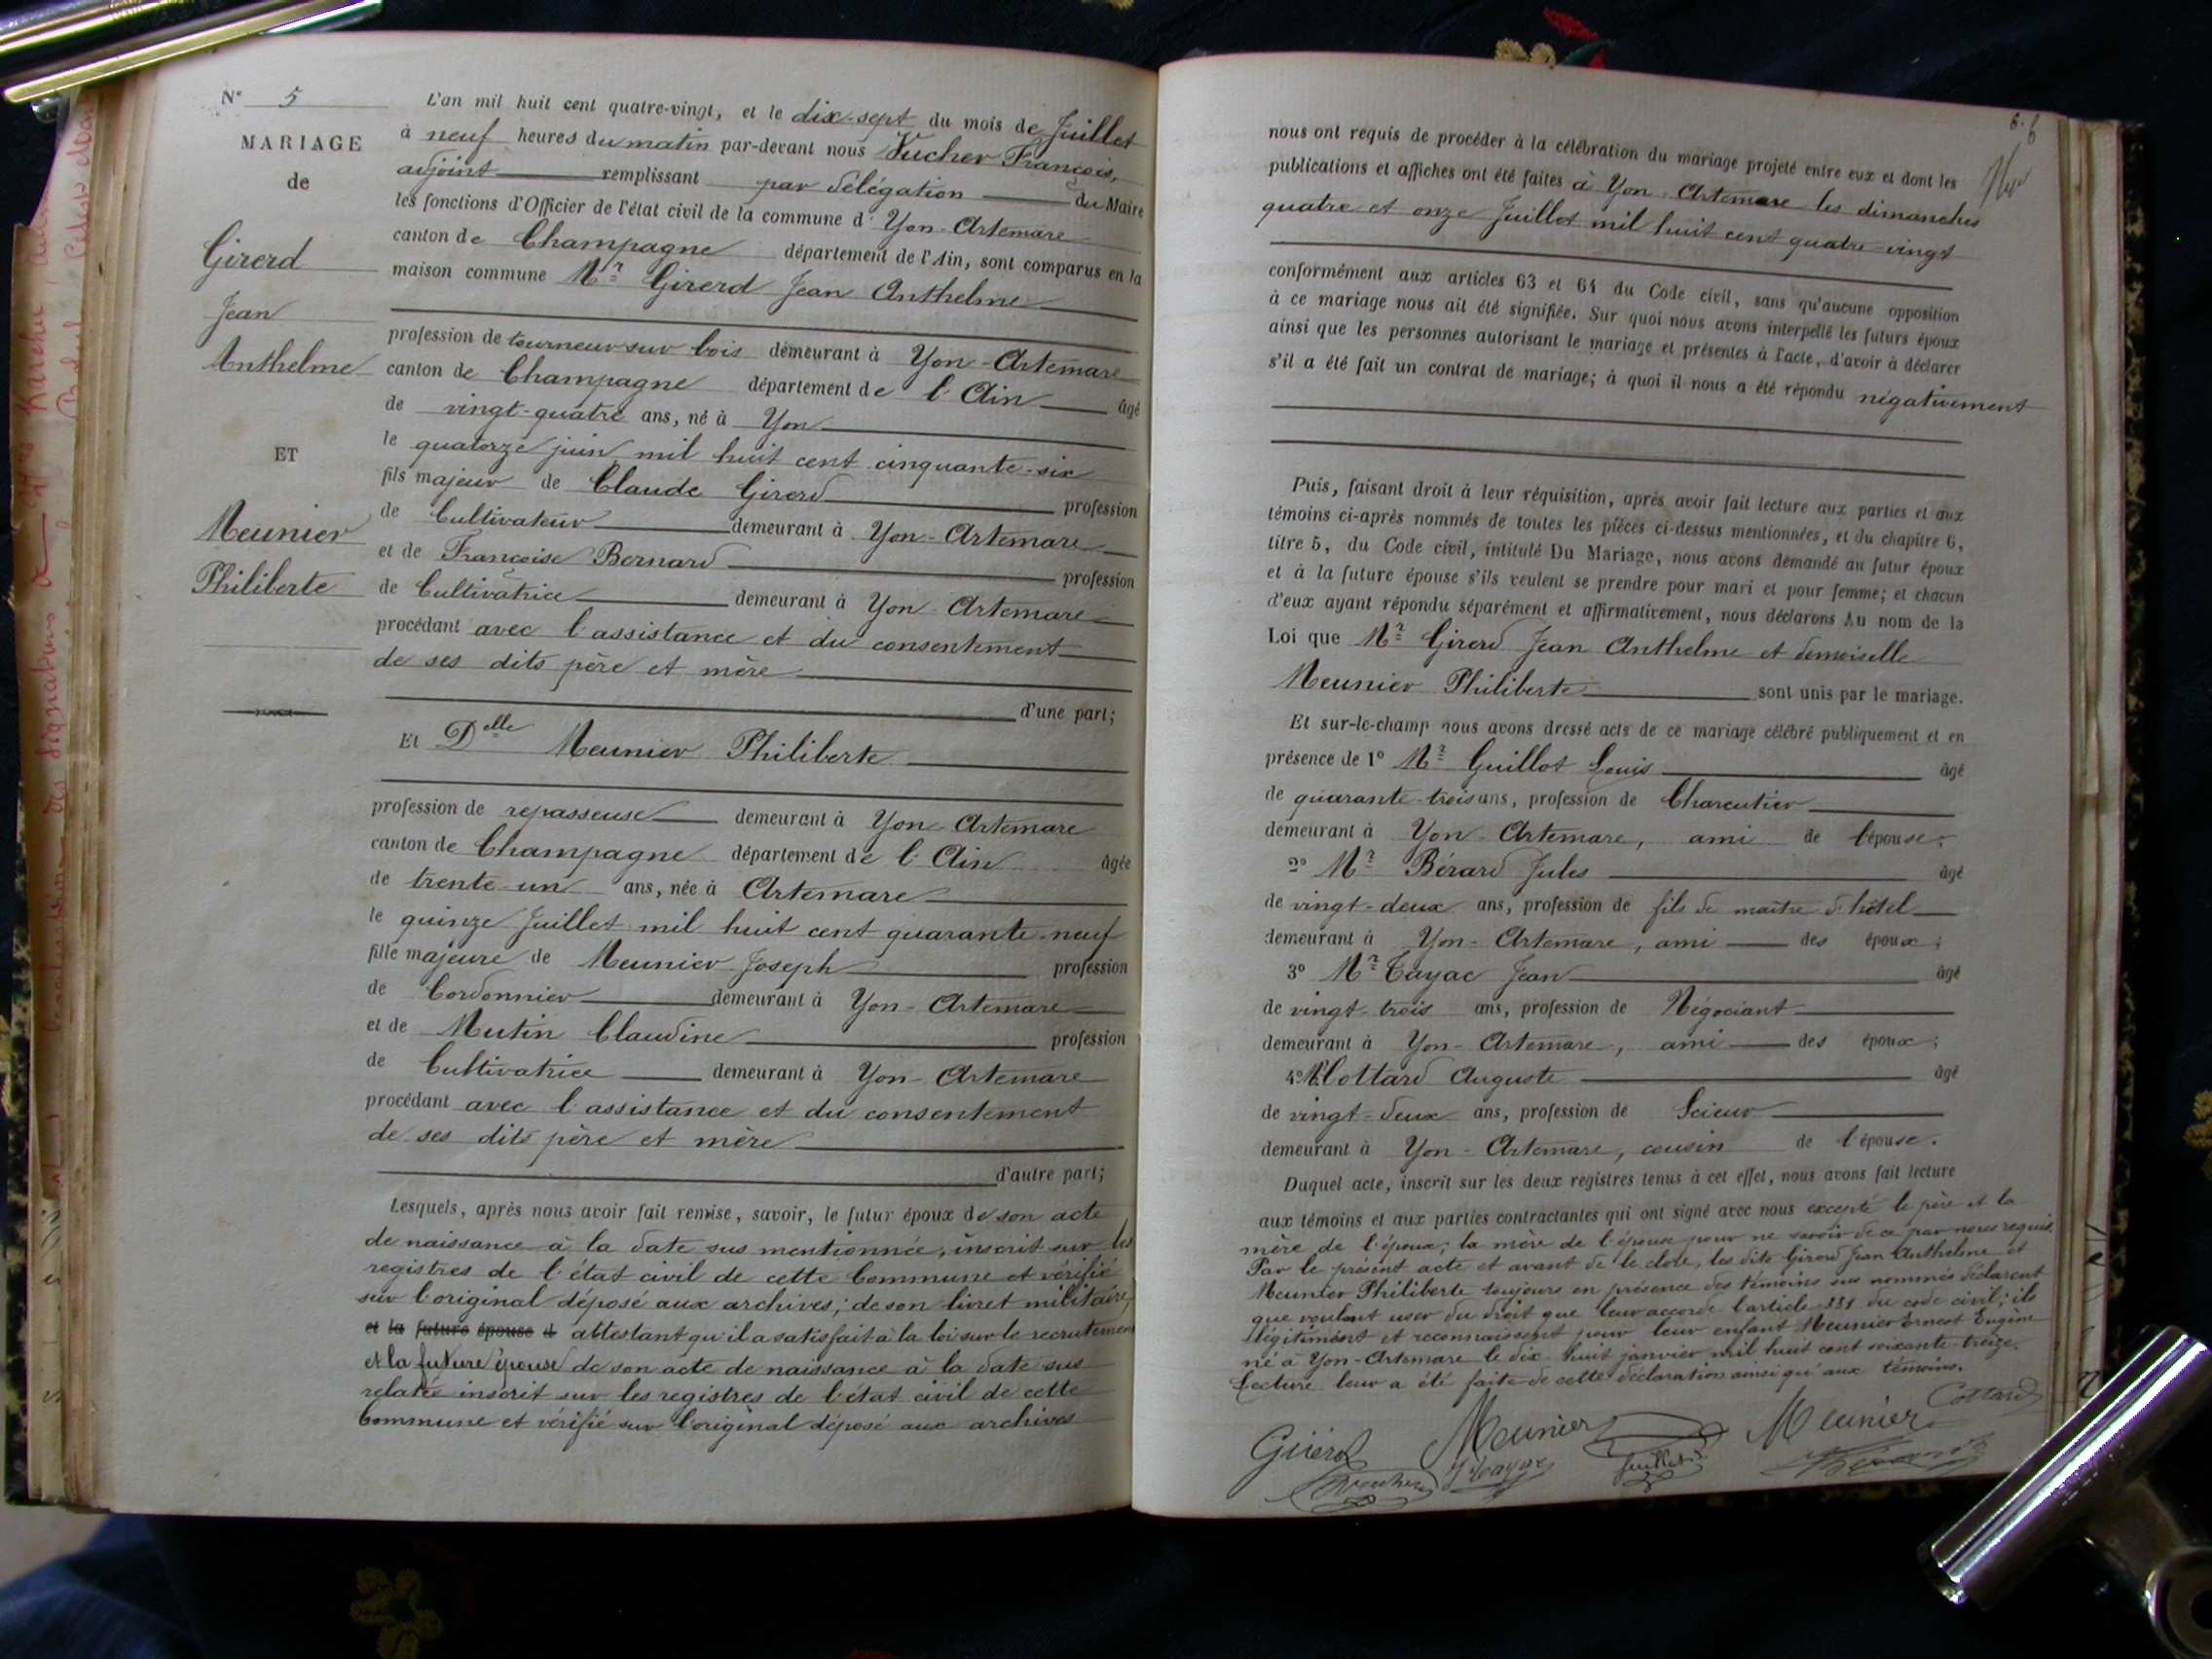 N° 5
MARIAGE
de
Girerd
Jean
Anthelme
ET
Meunier
Philiberte
L'an mil huit cent quatre-vingt, et le dix-sept du mois de Juillet
à neuf heures du matin par-devant nous Vucher François,
adjoint remplissant par délégation du Maire
les fonctions d'Officier de l'état civil de la commune d'Yon-Artemare
canton de Champagne département de l'Ain, sont comparus en la
maison commune Mr Girerd Jean Anthelme
profession de tourneur sur bois demeurant à Yon-Artemare
canton de Champagne département de l'Ain âgé
de vingt-quatre ans, né à Yon
le quatorze juin mil huit cent cinquante-six
fils majeur de Claude Girerd profession
de Cultivateur demeurant à Yon-Artemare
et de Françoise Bernard profession
de Cultivatrice demeurant à Yon-Artemare
procédant avec l'assistance et du consentement
de ses dits père et mère
d'une part;
Et Delle Meunier Philiberte
profession de repasseuse demeurant à Yon-Artemare
canton de Champagne département de l'Ain âgée
de trente-un ans, née à Artemare
le quinze Juillet mil huit cent quarante-neuf
fille majeure de Meunier Joseph profession
de Cordonnier demeurant à Yon-Artemare
et de Mutin Claudine profession
de Cultivatrice demeurant à Yon-Artemare
procédant avec l'assistance et du consentement
de ses dits père et mère
d'autre part;
Lesquels, après nous avoir fait remise, savoir, le futur époux de son acte
de naissance à la date sus mentionnée, inscrit sur les
registres de l'état civil de cette Commune et vérifié
sur l'original déposé aux archives; de son livret militaire,
et la future épouse d attestant qu'il a satisfait à la loi sur le recrutement
et la future épouse de son acte de naissance à la date sus
relatée inscrit sur les registres de l'état civil de cette
Commune et vérifié sur l'original déposé aux archives
nous ont requis de procéder à la célébration du mariage projeté entre eux et dont les
publications et affiches ont été faites à Yon-Artemare les dimanches
quatre et onze Juillet mil huit cent quatre-vingt
conformément aux articles 63 et 64 du Code civil, sans qu'aucune opposition
à ce mariage nous ait été signifiée. Sur quoi nous avons interpellé les futurs époux
ainsi que les personnes autorisant le mariage et présentes à l'acte, d'avoir à déclarer
s'il a été fait un contrat de mariage; à quoi il nous a été répondu négativement
Puis, faisant droit à leur réquisition, après avoir fait lecture aux parties et aux
témoins ci-après nommés de toutes les pièces ci-dessus mentionnées, et du chapitre 6,
titre 5, du Code civil, intitulé Du Mariage, nous avons demandé au futur époux
et à la future épouse s'ils veulent se prendre pour mari et pour femme; et chacun
d'eux ayant répondu séparément et affirmativement, nous déclarons Au nom de la
Loi que Mr Girerd Jean Anthelme et demoiselle
Meunier Philiberte sont unis par le mariage.
Et sur-le-champ nous avons dressé acte de ce mariage célébré publiquement et en
présence de 1° Mr Guillot Louis âgé
de quarante-trois ans, profession de Charcutier
demeurant à Yon-Artemare, ami de l'épouse;
2° Mr Bérard Jules âgé
de vingt-deux ans, profession de fils de maître d'hôtel
demeurant à Yon-Artemare, ami des époux;
3° Mr Tayac Jean âgé
de vingt-trois ans, profession de Négociant
demeurant à Yon-Artemare, ami des époux;
4° Mr Cottard Auguste âgé
de vingt-deux ans, profession de Scieur
demeurant à Yon-Artemare, cousin de l'épouse.
Duquel acte, inscrit sur les deux registres tenus à cet effet, nous avons fait lecture
aux témoins et aux parties contractantes qui ont signé avec nous excepté le père et la
mère de l'époux; la mère de l'épouse pour ne savoir de ce par nous requis.
Par le présent acte et avant de le clore, les dits Girerd Jean Anthelme et
Meunier Philiberte toujours en présence des témoins sus nommés déclarent
que voulant user du droit que leur accorde l'article 331 du code civil; ils
légitiment et reconnaissent pour leur enfant Meunier Ernest Eugène
né à Yon-Artemare le dix huit janvier mil huit cent soixante-treize.
Lecture leur a été faite de cette déclaration ainsi qu'aux témoins.
Cottard
Girerd Meunier Meunier
Vucher J Tayac Guillot Bérard